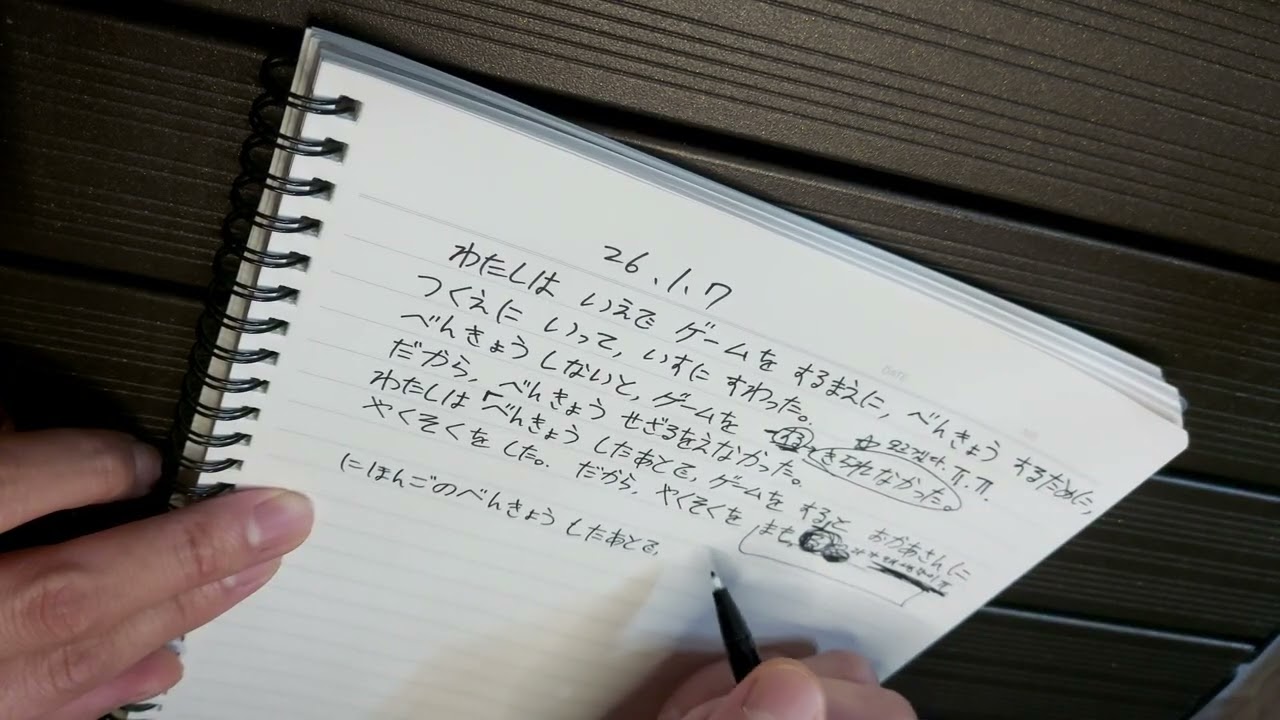 DATE
26.1.7
わたしは いえで ゲームを するまえに, べんきょう するために,
つくえに いって, いすに すわった。
べんきょう しないと, ゲームを きられなかった。
だから, べんきょう せざるをえなかった。
わたしは「べんきょう したあとで, ゲームを すると おかあさんに
やくそくを した。 だから, やくそくを まも
にほんごのべんきょう したあとで,